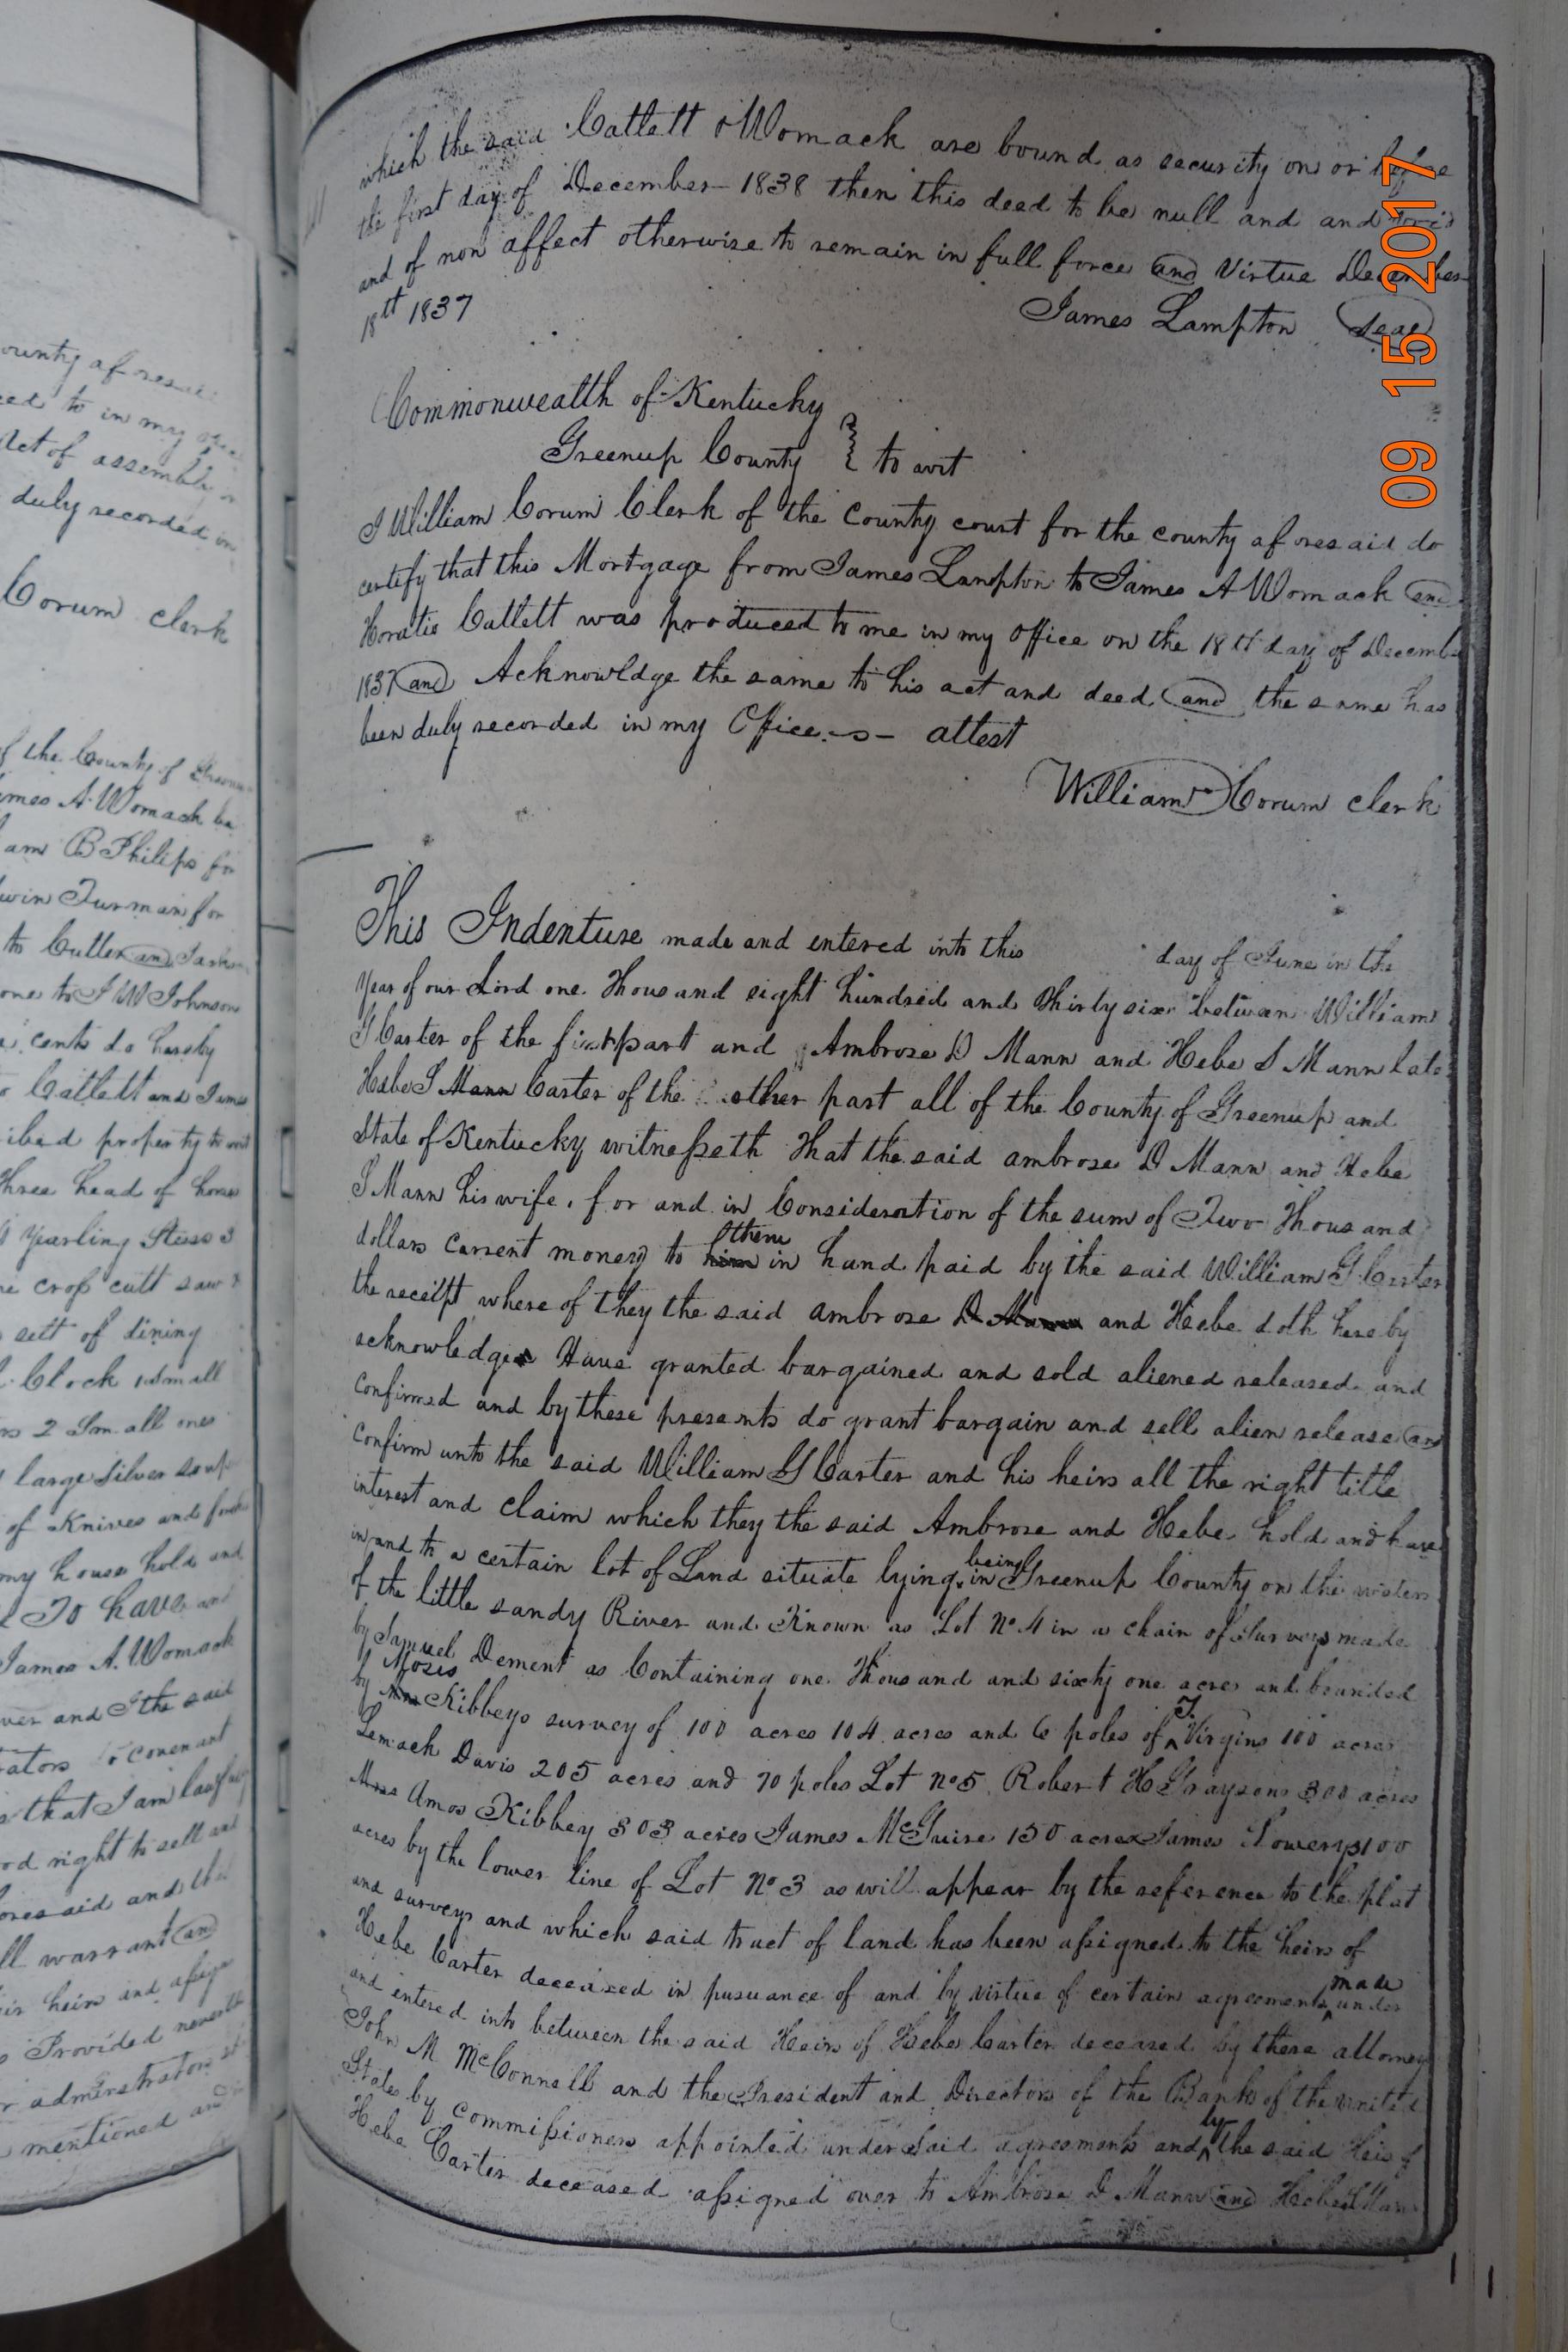 ounty aforesai
ed to in my
Act of assembly
duly recorded in
Corum clerk
of the County of
James A Womack
am B Philips for
win Turman for
to Cutler and
one to J W Johnson
cents do hereby
Catlett and James
ibed property to wit
three head of
yearling Steers 3
crop cutt saw
sett of dining
Clock 1 small
2 Small ones
large Silver soup
of Knives and forks
my house hold and
To have and
James A. Womack
ver and I the said
ators covenant
that I am lawfully
od right to sell and
oresaid and the
ll warrant and
ir heirs and assigns
Provided
administrators
mentioned and
which the said Catlett & Womack are bound as security on or before
the first day of December 1838 then this deed to be null and and void
and of non affect otherwise to remain in full force and Virtue December
18th 1837
James Lampton Seal
Commonwealth of Kentucky
Greenup County } to wit
I William Corum Clerk of the County court for the county aforesaid do
certify that this Mortgage from James Lampton to James A Womack and
Horatio Catlett was produced to me in my office on the 18th day of Decembe
1837 and Acknowldge the same to his act and deed and the same has
been duly recorded in my Office — attest
William Corum clerk
This Indenture made and entered into this day of June in the
Year of our Lord one Thousand eight hundred and Thirty six between William
G Carter of the first part and Ambrose D Mann and Hebe S Mann late
Hebe S Mann Carter of the other part all of the County of Greenup and
State of Kentucky witnesseth That the said ambrose D Mann and Hebe
S Mann his wife, for and in Consideration of the sum of Two Thousand
dollars current money to him them in hand paid by the said William G Carter
the receipt where of they the said ambrose D Mann and Hebe doth hereby
acknowledge Have granted bargained and sold aliened released and
confirmed and by these presents do grant bargain and sell alien release and
confirm unto the said William G Carter and his heirs all the right title
interest and claim which they the said Ambrose and Hebe hold and have
in and to a certain lot of Land situate lying being in Greenup County on the waters
of the little sandy River and Known as Lot No 4 in a chain of Surveys made
by Samuel Dement as Containing one Thousand and sixty one acres and bounded
by Moses Kibbeys survey of 100 acres 104 acres and 6 poles of T. Virgins 100 acres
Lemach Davis 205 acres and 70 poles Lot No 5 Robert H Graysons 300 acres
Amos Kibbey 303 acres James McGuire 150 acres James Lowerys 100
acres by the lower line of Lot No 3 as will appear by the reference to the plat
and surveys and which said tract of land has been assigned to the heirs of
Hebe Carter deceased in pusuance of and by virtue of certain agreements made under
and entered into between the said Heirs of Hebe Carter deceased by there attorney
John M McConnell and the President and Directors of the Bank of the united
States by commissioners appointed under said agreements and by the said Heis of
Hebe Carter deceased assigned over to Ambrose D Mann and Hebe S Mann
09 15 2017